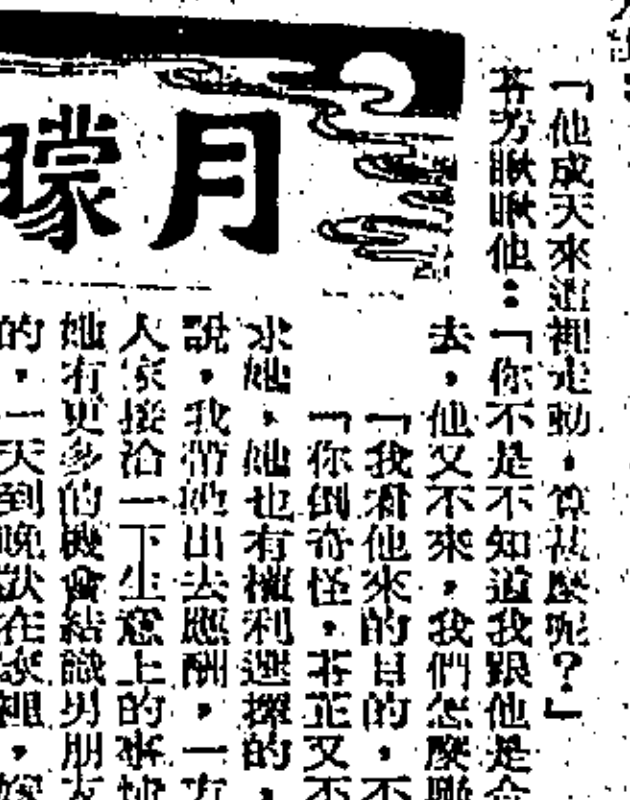 月朦
「他成天來這裡走動，算甚麼呢？」
若芳瞅瞅他：「你不是不知道我跟他是
去，他又不來，我們怎麼聯
「我看他來的目的，不
「你倒奇怪，若芷又不
求她，她也有權利選擇的，
說，我帶她出去應酬，一方
人家接洽一下生意上的事
她有更多的機會結識男朋友
的，一天到晚